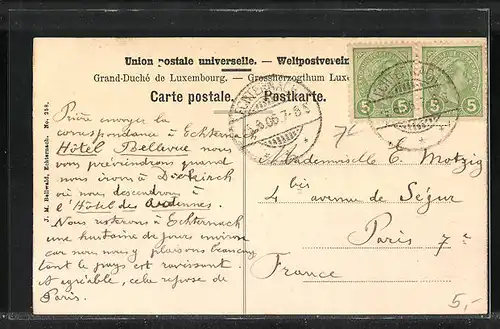 Union postale universelle. — Weltpostverein
Grand-Duché de Luxembourg. — Grossherzogthum Luxe
Carte postale. Postkarte.
5 5 5
ECHTERNACH
J. M. Bellwald, Echternach. No. 258.
Prière envoyer la
correspondance à Echternach
Hôtel Bellevue nous
vous préviendrons quand
nous irons à Diekirch
où nous descendrons à
l'Hôtel des Ardennes.
Nous resterons à Echternach
une huitaine de jours environ
car nous nous y plaisons beaucoup
tant le pays est ravissant
et agréable, cela repose de
Paris.
Mademoiselle E. Motzig
4 bis avenue de Ségur
Paris 7e
France
5,-